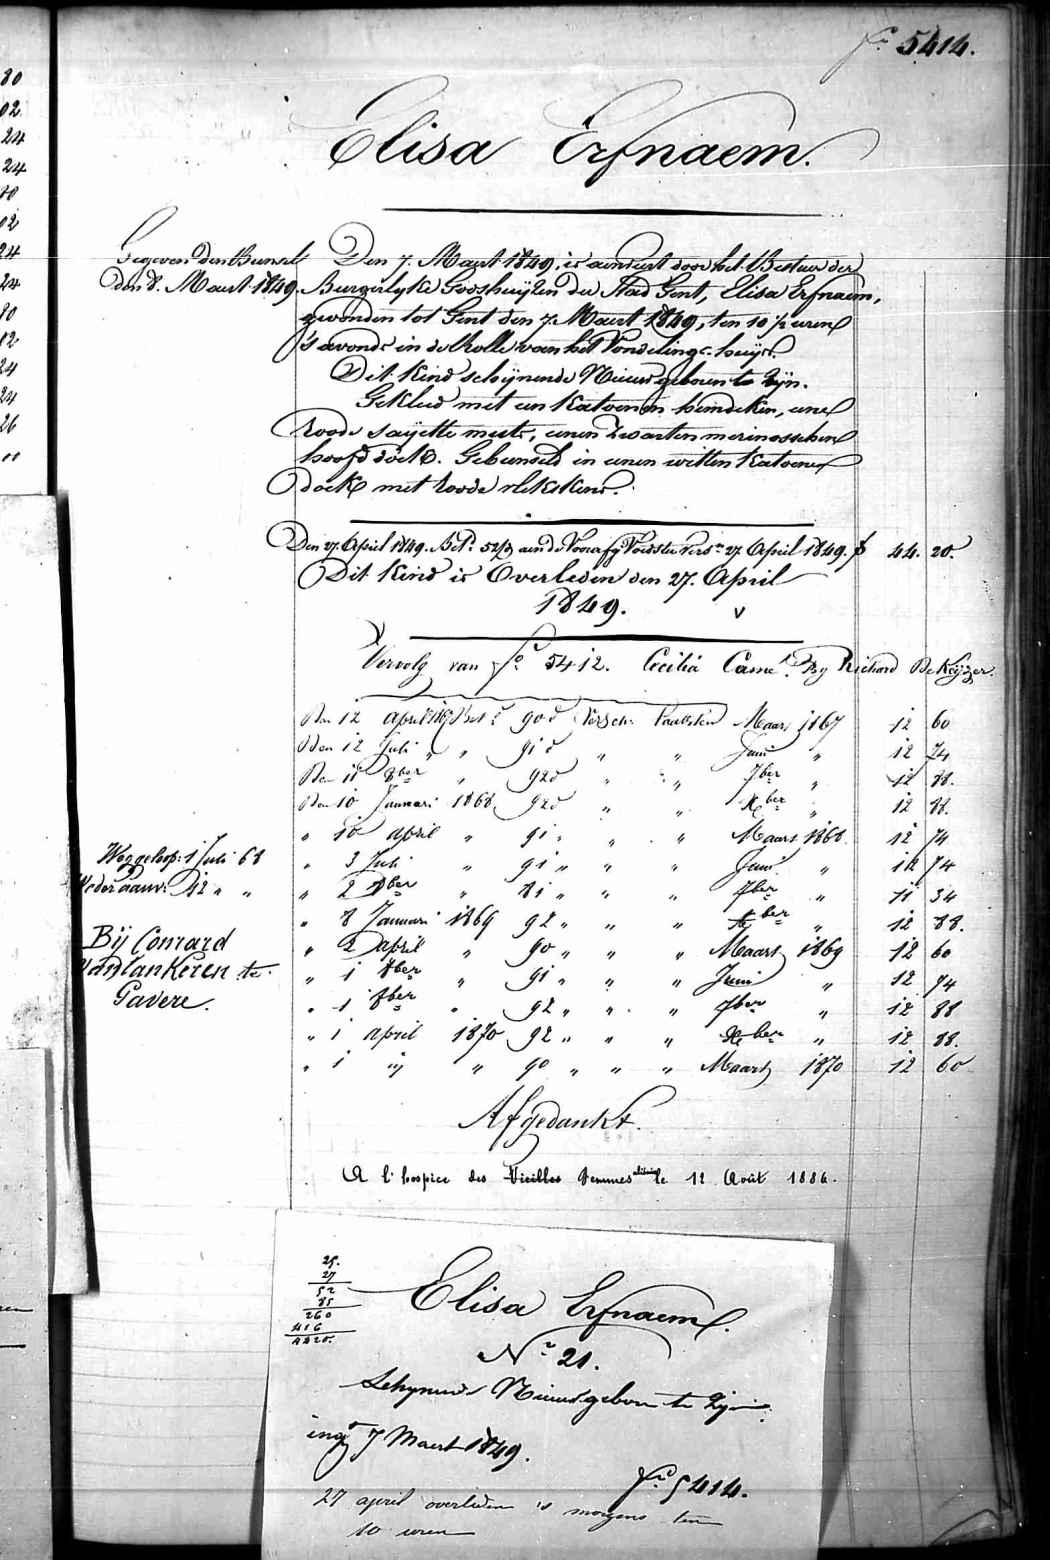 fo 5414.
Elisa Erfnaem.
Gegeven den Bunsel
den 8. Maart 1849.
Den 7. Maart 1849, is aenveert door het Bestuer der
Burgerlyke Godshuijzen der Stad Gent, Elisa Erfnaem,
gevonden tot Gent den 7. Maert 1849, ten 10 1/2 uren
's avonds in de Rolle van het Vondelings-huijs.
Dit kind schijnende Nieuwgeboren te zijn.
Gekleed met een katoenen hemdeken, eene
roode saijette muts, eenen zwarten merinosschen
hoofddoek. Gebunseld in eenen witten katoenen
doek met roode vlekskens.
Den 27. April 1849. Bet. 52 aen de Voorafg Voedster Vers. 27 April 1849. f 44. 20.
Dit Kind is Overleden den 27. April
1849.
Vervolg van fo 5412. Cecilia Came. By Richard De Keijzer.
Den 12 april 1867 Bet. 90 d Versch. Maart 1867 12 60
Den 12 Juli " " 91 d " " Juni " 12 74
Den 11 8ber " 92 d " " 7ber " 12 88.
Den 10 Januari 1868 92 d " " Xber " 12 88.
" 10 april " 91 " " " Maart 1868 12 74
Weggelop: 1 Juli 68
" 3 Juli " 91 " " " Juni " 12 74
Weder aanv: 12 " "
" 2 8ber " 81 " " " 7ber " 11 34
" 8 Januari 1869 92 " " " Xber " 12 88.
Bij Conrard
" 2 april " 90 " " " Maart 1869 12 60
Vanlankeren te
" 1 8ber " 91 " " " Juni " 12 74
Gavere.
" 1 8ber " 92 " " " 7ber " 12 88
" 1 april 1870 92 " " " Xber " 12 88.
" 1 " " 90 " " " Maart 1870 12 60
Afgedankt.
A l'hospice des Vieilles Femmes le 12 Août 1886.
25.
27
52
85
260
416
4420.
Elisa Erfnaem.
Nr 21.
Schynende Nieuwgeboren te zijn.
ing 7 Maert 1849.
fo 5414.
27 april overleden 's morgens ten
10 uren